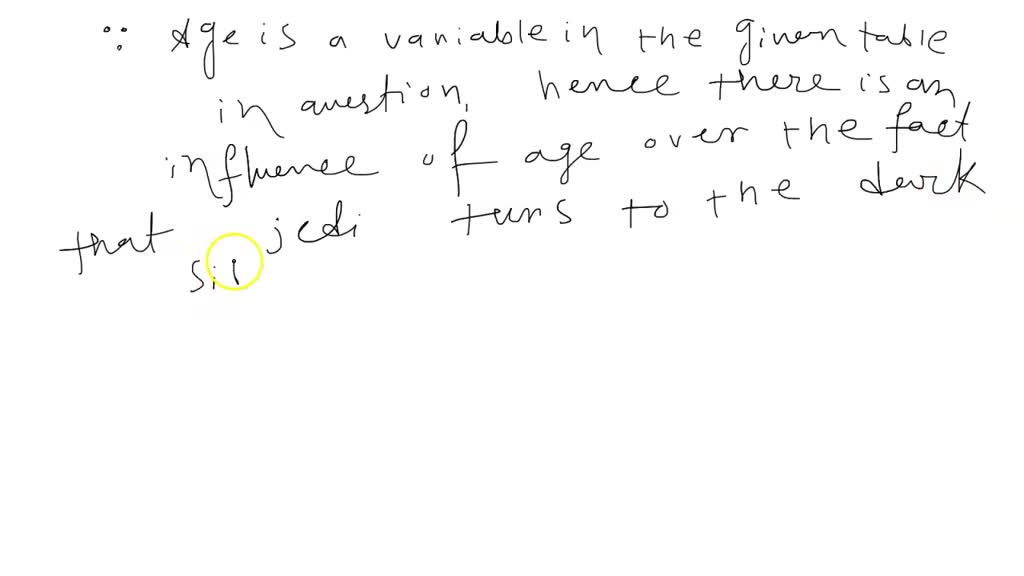 ∵ Age is a variable in the given table
in question, hence there is an
influence of age over the fact
that jedi turns to the dark
si